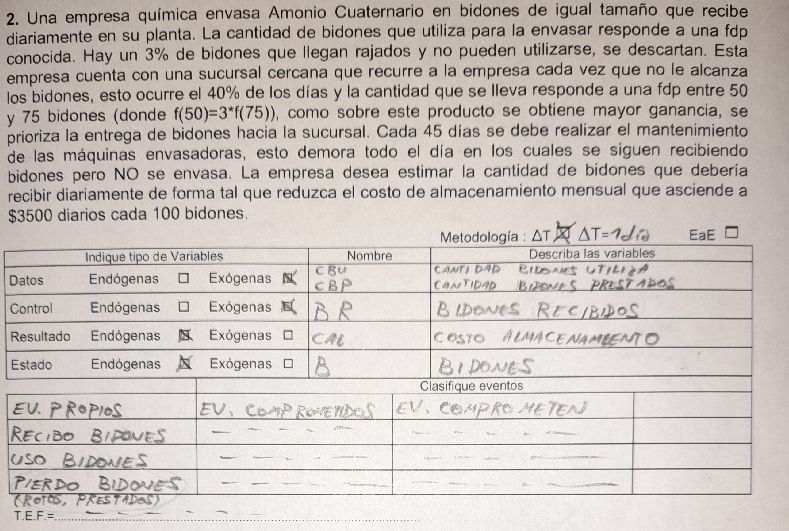 2. Una empresa química envasa Amonio Cuaternario en bidones de igual tamaño que recibe
diariamente en su planta. La cantidad de bidones que utiliza para la envasar responde a una fdp
conocida. Hay un 3% de bidones que llegan rajados y no pueden utilizarse, se descartan. Esta
empresa cuenta con una sucursal cercana que recurre a la empresa cada vez que no le alcanza
los bidones, esto ocurre el 40% de los días y la cantidad que se lleva responde a una fdp entre 50
y 75 bidones (donde f(50)=3*f(75)), como sobre este producto se obtiene mayor ganancia, se
prioriza la entrega de bidones hacia la sucursal. Cada 45 días se debe realizar el mantenimiento
de las máquinas envasadoras, esto demora todo el día en los cuales se siguen recibiendo
bidones pero NO se envasa. La empresa desea estimar la cantidad de bidones que debería
recibir diariamente de forma tal que reduzca el costo de almacenamiento mensual que asciende a
$3500 diarios cada 100 bidones.
Metodología : ΔT ☒ ΔT=1día EaE ☐
Indique tipo de Variables Nombre Describa las variables
Datos Endógenas ☐ Exógenas ☒ CBU CANTIDAD BIDONES UTILIZA
CBP CANTIDAD BIDONES PRESTADOS
Control Endógenas ☐ Exógenas ☒ BR BIDONES RECIBIDOS
Resultado Endógenas ☒ Exógenas ☐ CAL COSTO ALMACENAMIENTO
Estado Endógenas ☒ Exógenas ☐ B BIDONES
Clasifique eventos
EV. PROPIOS EV. COMPROMETIDOS EV. COMPROMETEN
RECIBO BIDONES — — — — — — — —
USO BIDONES — — — — — — — —
PIERDO BIDONES — — — — — — — —
(ROTOS, PRESTADOS)
T.E.F.=.... — — — -